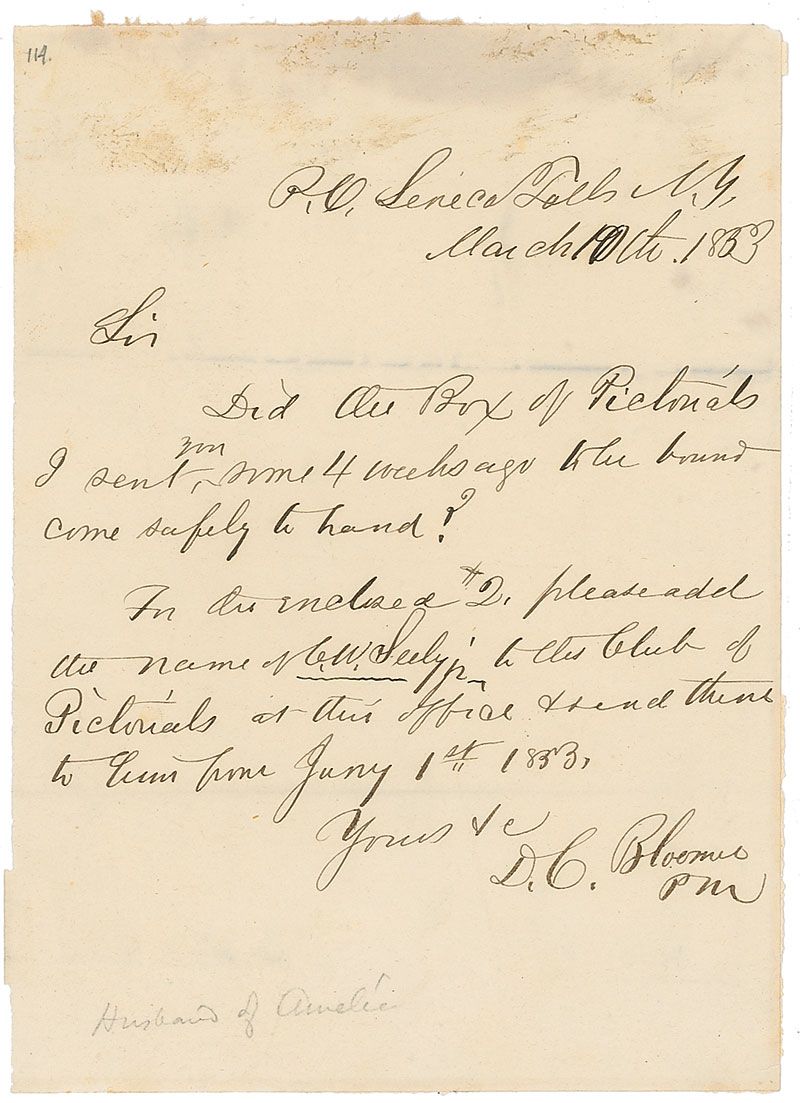 114.
P.O. Seneca Falls N.Y.
March 10th. 1853
Sir
Did the Box of Pictorials
you
I sent, some 4 weeks ago to be bound
come safely to hand?
In the enclosed $2. please add
the name of C. W. Seely jr. to the Club of
Pictorials at this office & send them
to him from Jany 1st 1853.
Yours &c
D. C. Bloomer
PM
Husband of Amelia